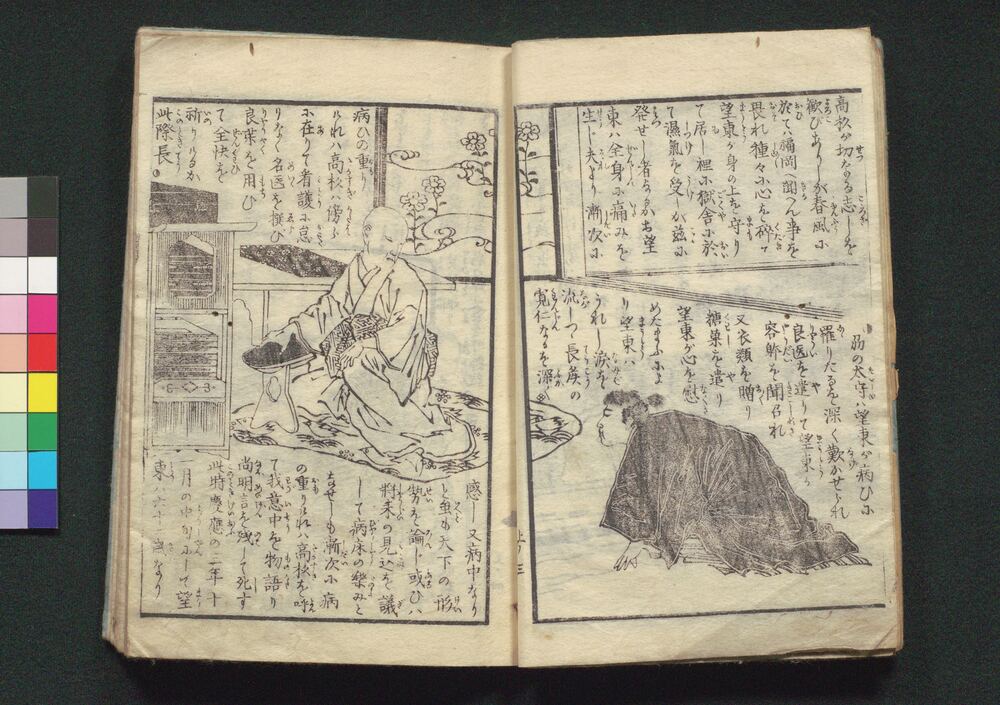 高杉が切なる志しを
歓びありしが春風ふ
於て福岡へ聞へん事を
畏れ種々ふ心を砕て
望東が身の上を守り
て居し程ふ獄舎ふ於
て濕氣を受しが茲ふ
發せし者なるか望
東ハ全身ふ痛みを
生じ夫より漸次ふ
病ひの重り
けれハ高杉ハ傍らふ
ふ在りて看護ふ怠
りなく名医を撰び
良薬を用ひ
て全快を
祈りけるが
此際長
防の太守ハ望東が病ひふ
罹りたるを深く歎かせられ
良医を遣りて望東が
容躰を聞召れ
又衣類を贈り
糖菓を遣り
望東が心を慰
めたまふふよ
り望東ハ
うれし涙を
流しつゝ長侯の
寛仁なるを深く
感し又病中なり
と虽も天下の形
勢を論じ或ひハ
将来の見込を議
して病床の楽みと
なせしも漸次ふ病
の重りけれハ高杉を呼
て我意中を物語り
尚明言を残して死す
此時慶應の二年十
一月の中旬ふして望
東ハ六十二歳なり
上ノ三